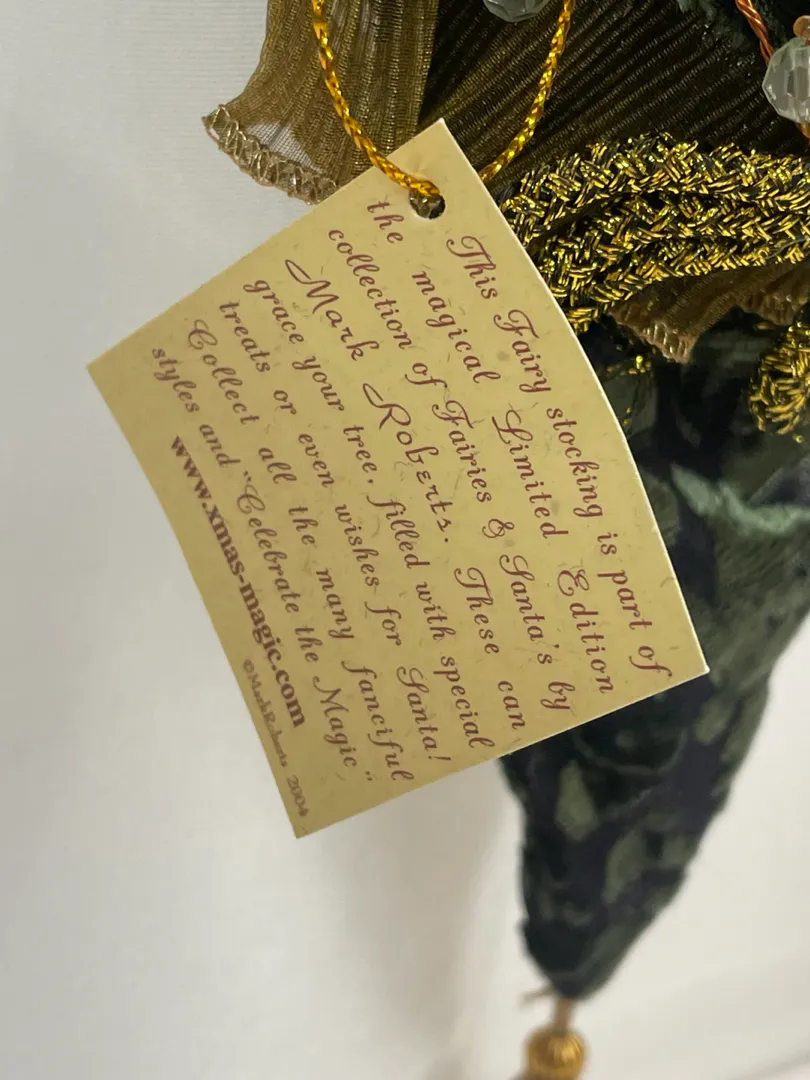 This Fairy stocking is part of
the magical Limited Edition
collection of Fairies & Santa's by
Mark Roberts. These can
grace your tree, filled with special
treats or even wishes for Santa!
Collect all the many fanciful
styles and "Celebrate the Magic"
www.xmas-magic.com
©Mark Roberts 2004